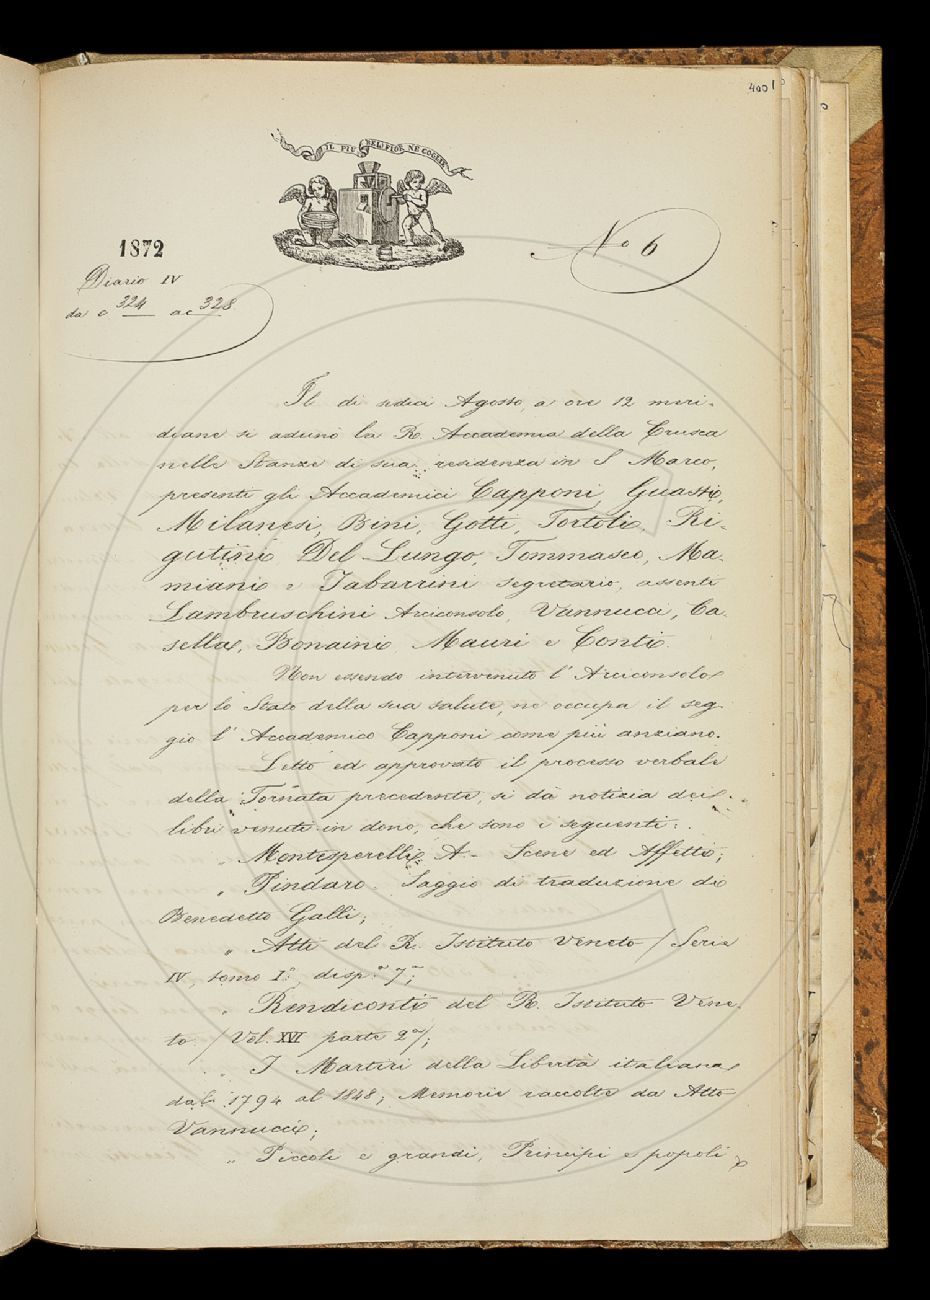 400
IL PIÙ BEL FIOR NE COGLIE
1872
No 6
Diario IV
da c 324 a c 328
Il dì sedici Agosto, a ore 12 meri-
diane si adunò la R. Accademia della Crusca
nelle Stanze di sua residenza in S. Marco,
presenti gli Accademici Capponi, Guasti,
Milanesi, Bini, Gotti, Tortoli, Ri-
gutini Del Lungo, Tommaseo, Ma-
miani e Tabarrini segretario, assenti
Lambruschini Arciconsolo, Vannucci, Ca-
sella, Bonaini, Mauri e Conti.
Non essendo intervenuto l'Arciconsolo
per lo Stato della sua salute, ne occupa il seg-
gio l'Accademico Capponi come più anziano.
Letto ed approvato il processo verbale
della Tornata precedente, si dà notizia dei
libri venuti in dono, che sono i seguenti:
" Montesperelli A. - Scene ed Affetti;
" Pindaro. Saggio di traduzione di
Benedetto Galli;
" Atti del R. Istituto Veneto / Serie
IV, tomo I°, disp.a 7a;
" Rendiconti del R. Istituto Vene-
to / Vol. XVI parte 2a/;
" I Martiri della Libertà italiana
dal 1794 al 1848; Memorie raccolte da Atto
Vannucci;
" Piccoli e grandi, Principi e popoli